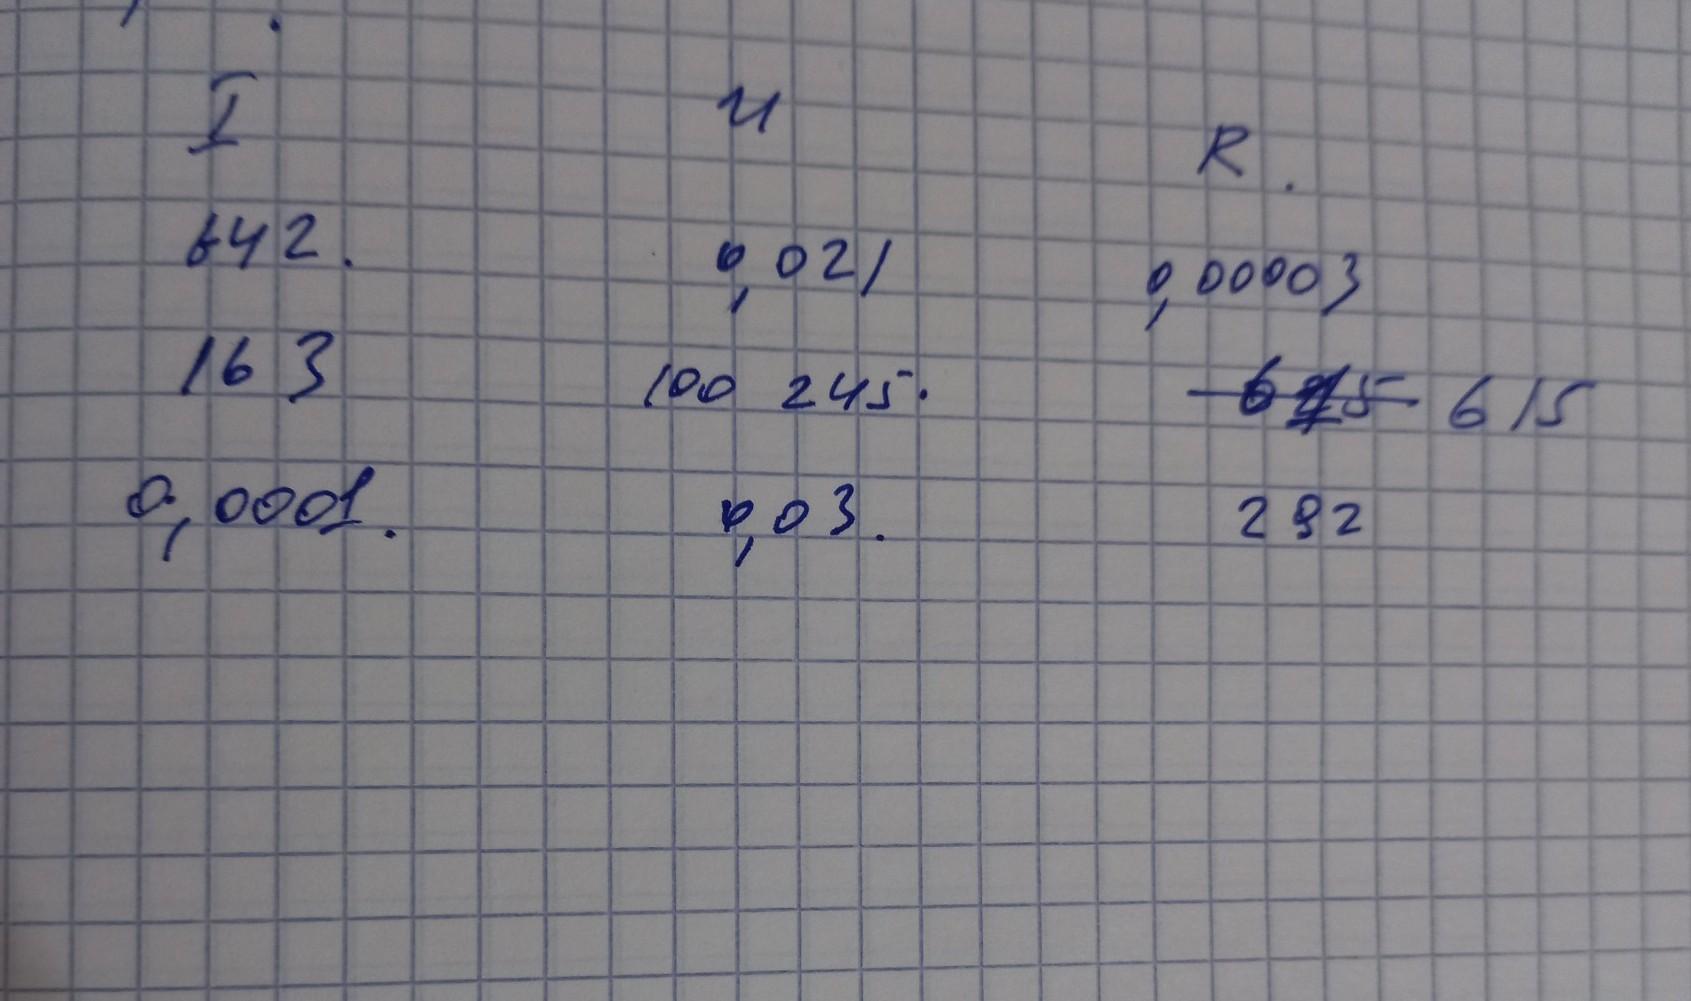 I U R.
642. 0,021 0,00003
163 100 245. 615
0,0001. 0,03. 292